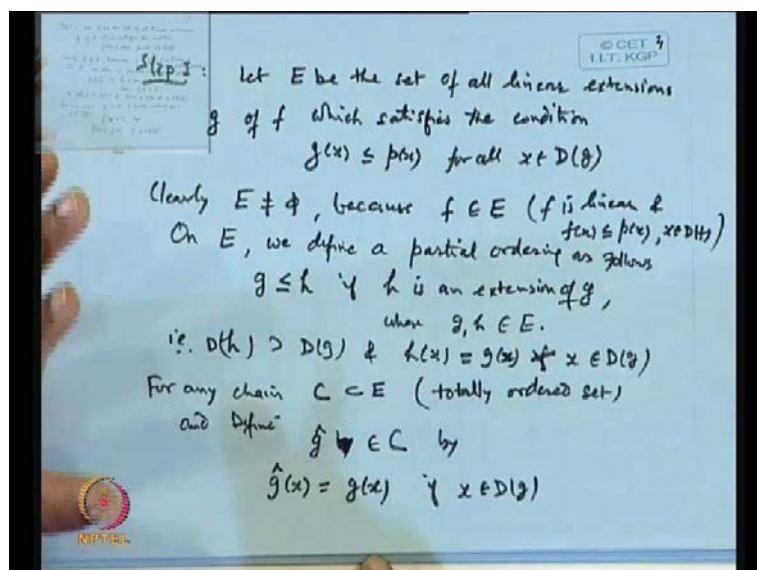 © CET 4
I.I.T. KGP
Step I : Let E be the set of all linear extensions
g of f which satisfies the condition
g(x) ≤ p(x) for all x ∈ D(g)
Clearly E ≠ ϕ, because f ∈ E (f is linear &
f(x) ≤ p(x), x ∈ D(f))
On E, we define a partial ordering as follows
g ≤ h if h is an extension of g,
where g, h ∈ E.
i.e. D(h) ⊃ D(g) & h(x) = g(x) if x ∈ D(g)
For any chain C ⊂ E (totally ordered set)
and Define
ĝ ∈ C by
ĝ(x) = g(x) if x ∈ D(g)
NPTEL